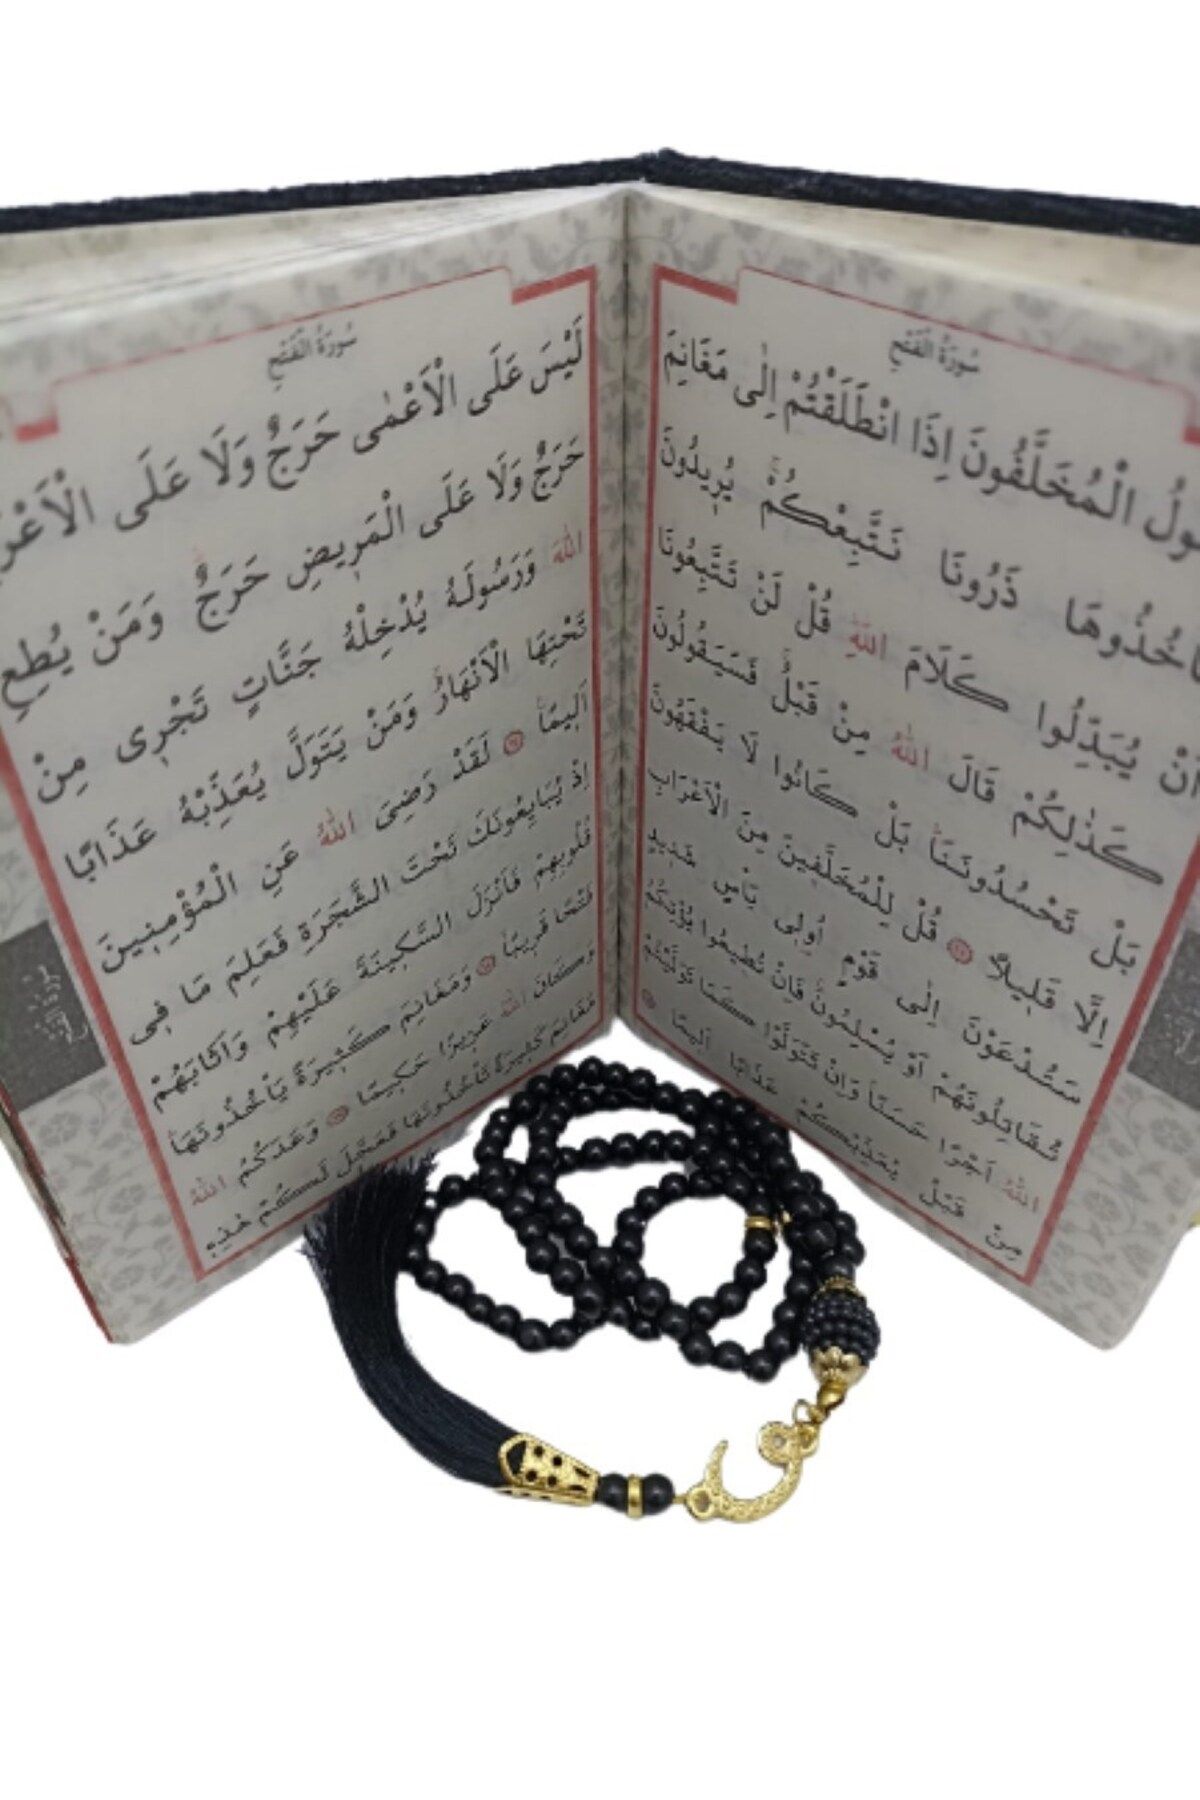 سُورَةُ الْفَتْحِ
الْمُخَلَّفُونَ اِذَا انْطَلَقْتُمْ اِلٰى مَغَانِمَ
ذَرُونَا نَتَّبِعْكُمْۚ يُرِيدُونَ
اَنْ يُبَدِّلُوا كَلَامَ اللّٰهِۜ قُلْ لَنْ تَتَّبِعُونَا
كَذٰلِكُمْ قَالَ اللّٰهُ مِنْ قَبْلُۚ فَسَيَقُولُونَ
بَلْ تَحْسُدُونَنَاۜ بَلْ كَانُوا لَا يَفْقَهُونَ
اِلَّا قَلِيلًا قُلْ لِلْمُخَلَّفِينَ مِنَ الْاَعْرَابِ
سَتُدْعَوْنَ اِلٰى قَوْمٍ اُو۬لِى بَاْسٍ شَدِيدٍ
تُقَاتِلُونَهُمْ اَوْ يُسْلِمُونَۚ فَاِنْ تُطِيعُوا يُؤْتِكُمُ
اللّٰهُ اَجْرًا حَسَنًاۚ وَاِنْ تَتَوَلَّوْا كَمَا تَوَلَّيْتُمْ
مِنْ قَبْلُ يُعَذِّبْكُمْ عَذَابًا اَلِيمًا
سُورَةُ الْفَتْحِ
لَيْسَ عَلَى الْاَعْمٰى حَرَجٌ وَلَا عَلَى
حَرَجٌ وَلَا عَلَى الْمَرِيضِ حَرَجٌۜ وَمَنْ يُطِعِ
اللّٰهَ وَرَسُولَهُ يُدْخِلْهُ جَنَّاتٍ تَجْرِى مِنْ
تَحْتِهَا الْاَنْهَارُۚ وَمَنْ يَتَوَلَّ يُعَذِّبْهُ عَذَابًا
اَلِيمًاۜ لَقَدْ رَضِىَ اللّٰهُ عَنِ الْمُؤْمِنِينَ
اِذْ يُبَايِعُونَكَ تَحْتَ الشَّجَرَةِ فَعَلِمَ مَا فِى
قُلُوبِهِمْ فَاَنْزَلَ السَّكِينَةَ عَلَيْهِمْ وَاَثَابَهُمْ
فَتْحًا قَرِيبًاۙ وَمَغَانِمَ كَثِيرَةً يَاْخُذُونَهَاۜ
وَكَانَ اللّٰهُ عَزِيزًا حَكِيمًا وَعَدَكُمُ اللّٰهُ
مَغَانِمَ كَثِيرَةً تَاْخُذُونَهَا فَعَجَّلَ لَكُمْ هٰذِهِ